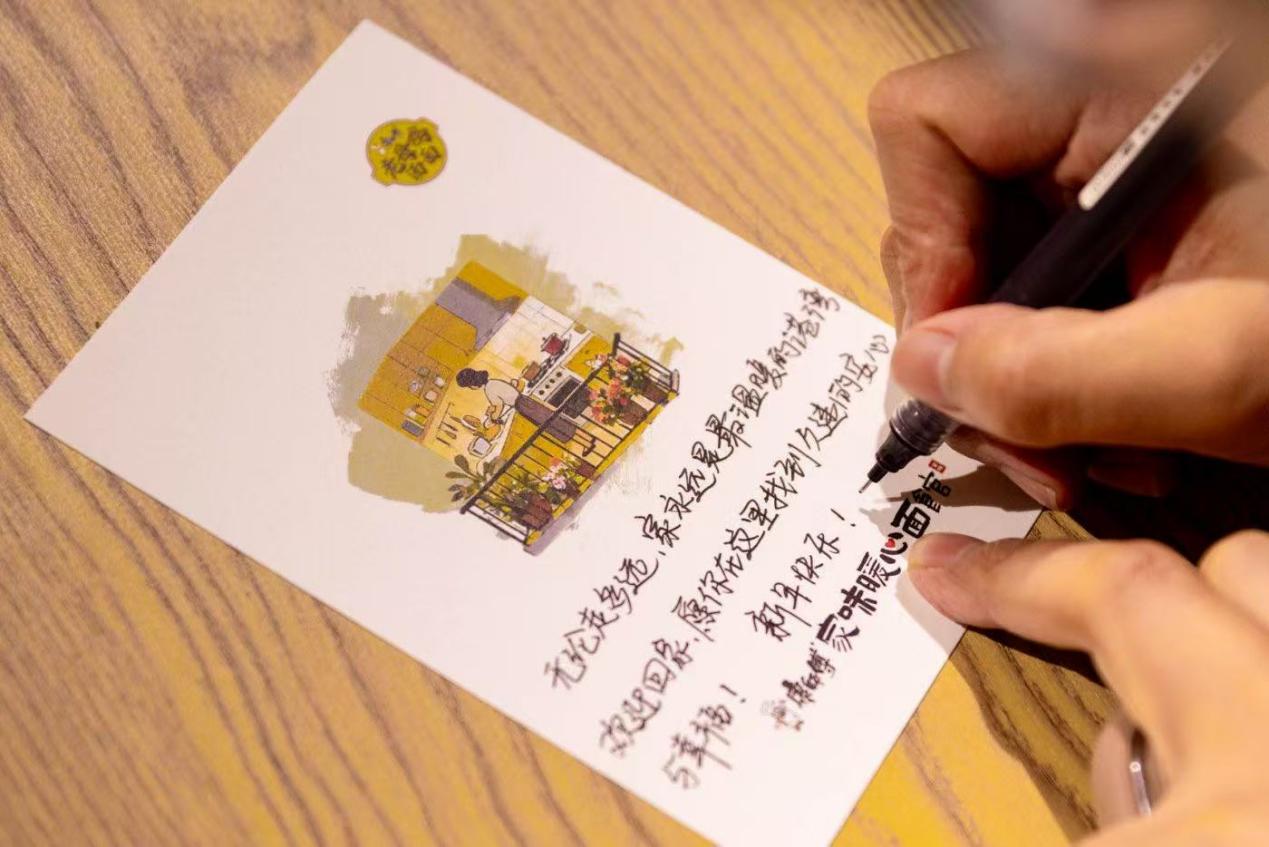 无论走多远，家永远是最温暖的港湾
欢迎回家，愿你在这里找到久违的安心
与幸福！ 新年快乐！
康师傅 家味暖心面館